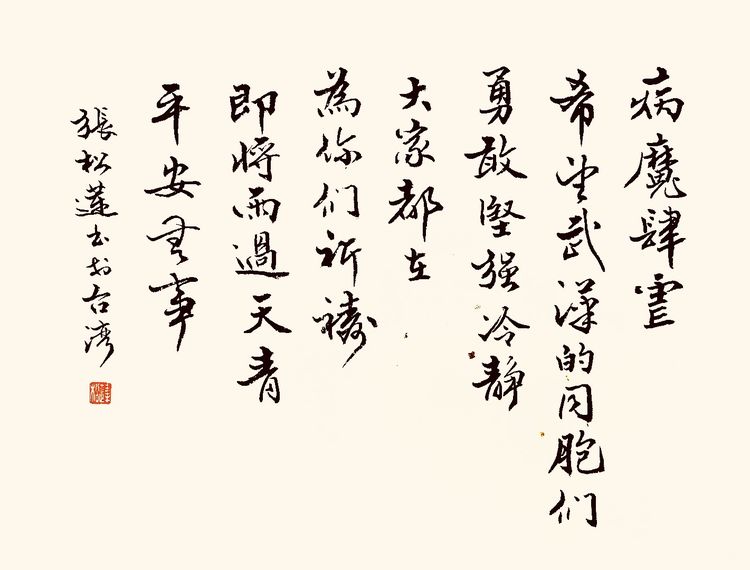 病魔肆虐
希望武漢的同胞们
勇敢堅强冷静
大家都在
為你们祈禱
即將雨過天青
平安無事
張松蓮书於台湾